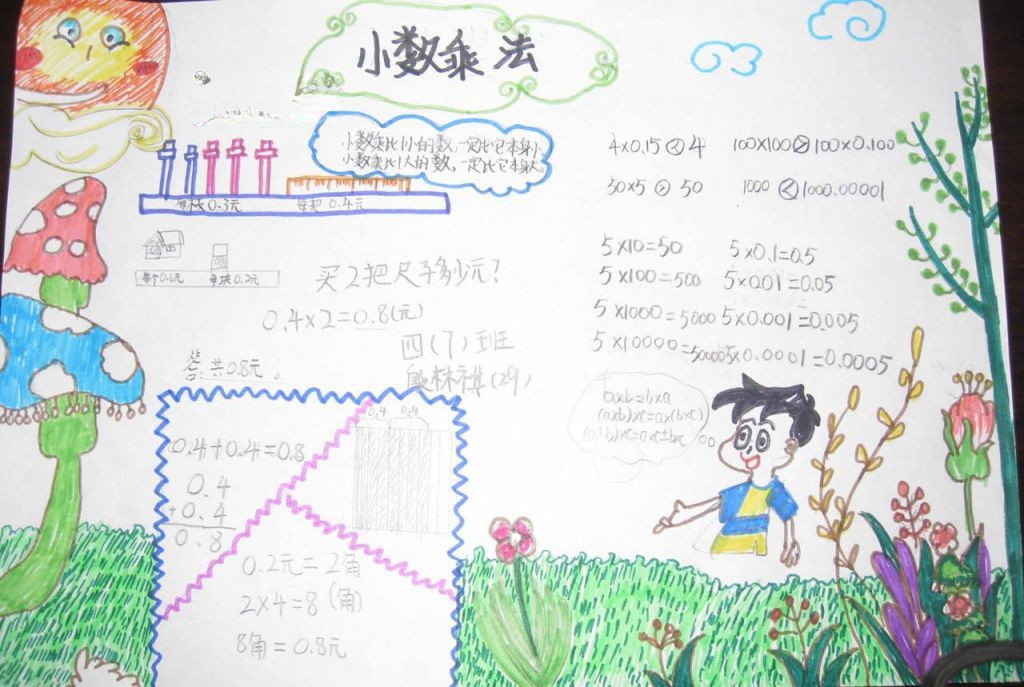 小数乘法
小数乘比1小的数,一定比它本身小
小数乘比1大的数,一定比它本身大
每枝0.3元 每把0.4元
每个0.6元 每块0.2元
买2把尺子多少元?
0.4×2=0.8(元)
答:共0.8元。
四(7)班
(29)
4×0.15<4 100×100>100×0.100
50×5>50 1000<1000.00001
5×10=50 5×0.1=0.5
5×100=500 5×0.01=0.05
5×1000=5000 5×0.001=0.005
5×10000=50000 5×0.0001=0.0005
a×b=b×a
(a×b)×c=a×(b×c)
(a±b)×c=ac±bc
0.4 0.4
0.4+0.4=0.8
0.4
+0.4
0.8
0.2元=2角
2×4=8(角)
8角=0.8元